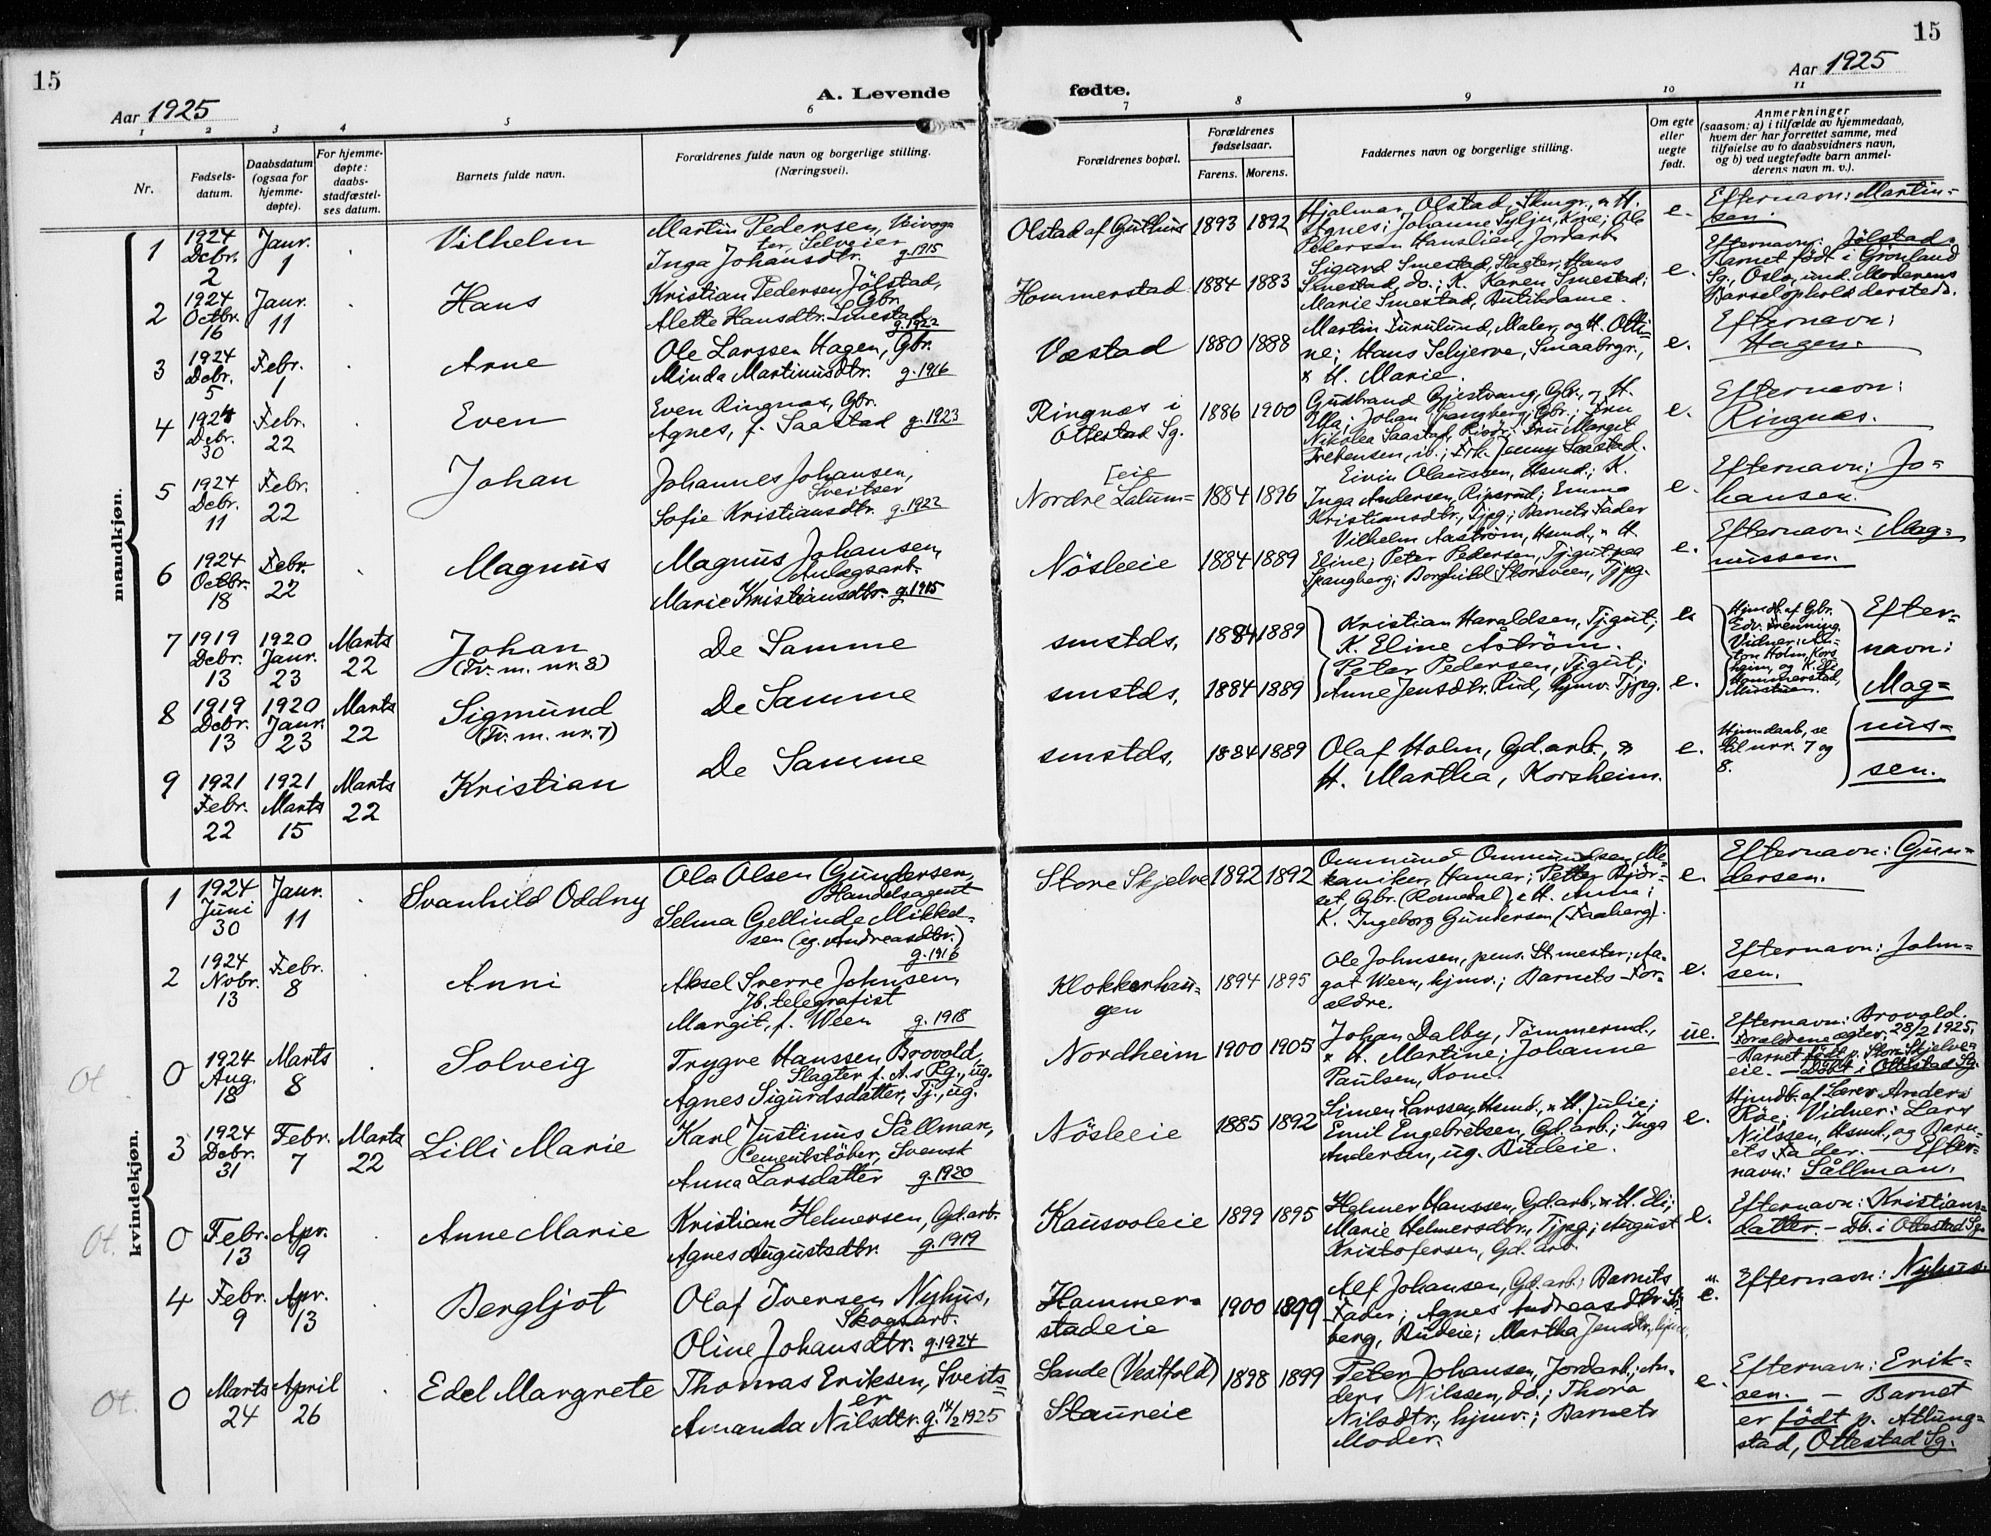 15
15
Aar 1925
A. Levende fødte.
Aar 1925
1 2 3 4 5 6 7 8 9 10 11
Nr.
Fødsels-
datum.
Daabsdatum
(ogsaa for
hjemme-
døpte).
For hjemme-
døpte:
daabs-
stadfæstel-
ses datum.
Barnets fulde navn.
Forældrenes fulde navn og borgerlige stilling.
(Næringsvei).
Forældrenes bopæl.
Forældrenes
fødselsaar.
Farens. Morens.
Faddernes navn og borgerlige stilling.
Om egte
eller
uegte
født.
Anmerkninger
(saasom: a) i tilfælde av hjemmedaab,
hvem der har forrettet samme, med
tilføielse av to daabsvidners navn,
og b) ved uegtefødte barn anmel-
derens navn m. v.).
mandkjøn.
1
1924
Debr.
2
Janr.
1
Vilhelm
Martin Pedersen,
Inga Johansdtr. g. 1915
Olstad af Guthus
1893 1892
Hjalmar Olstad,
Agnes; Johanne Kone; Ole
Pedersen Hanslien, Jordarb.
e.
Efternavn: Martin-
sen.
2
1924
Octbr.
16
Janr.
11
Hans
Kristian Pedersen Jølstad,
Gbr.
Alette Hansdtr. Smestad
g. 1922
Hommerstad
1884 1883
Sigurd Smestad, Slagter; Hans
Smestad, do.; K. Karen Smestad;
Marie Smestad, Butikdame.
e.
Efternavn: Jølstad.
Barnet født i Grønland
Sg., Oslo, und. Moderens
Barselophold dersteds.
3
1924
Debr.
5
Febr.
1
Arne
Ole Larssen Hagen, Gbr.
Minda Martinusdtr. g. 1916
Væstad
1880 1888
Martin Furulund, Maler, og H. Otti-
ne; Hans Schjerve, Smaabrgr.,
& H. Marie.
e.
Efternavn:
Hagen.
4
1924
Debr.
30
Febr.
22
Even
Even Ringnæs, Gbr.
Agnes, f. Saastad g. 1923
Ringnæs i
Ottestad Sg.
1886 1900
Gudbrand Gjestvang, Gbr., & H.
Ella; Johan Spangberg, Gbr.; Fru
Nikolea Saastad, Fru Margit
Jenny Saastad.
e.
Efternavn:
Ringnæs.
5
1924
Debr.
11
Febr.
22
Johan
Johannes Johansen,
Sveitser
Sofie Kristiansdtr. g. 1922
[eie
Nordre Lalum=
1884 1896
Eivin Olaussen, Hsmd.; K.
Inga Andersen, Emma
Kristiansdtr., Tjpg.; Barnets Fader
e.
Efternavn: Jo-
hansen.
6
1924
Octbr.
18
Febr.
22
Magnus
Magnus Johansen,
Anlægsarb.
Marie Kristiansdtr. g. 1915
Nøsleeie
1884 1889
Vilhelm Aastrøm, Hsmd., & H.
Eline; Peter Pedersen, Tjgut paa
Spangberg; Borghild Storsveen, Tjpg.
e.
Efternavn: Mag-
nussen.
7
1919
Debr.
13
1920
Janr.
23
Marts
22
Johan
(Tv. m. nr. 8)
De Samme
smstds,
1884 1889
Kristian Haraldsen, Tjgut;
K. Eline Åstrøm.
e.
Hjmdb. af Gbr.
Edv. Frenning,
Vidner: An-
ton Holm, Kors
heim, og K.
Hommerstad,
8
1919
Debr.
13
1920
Janr.
23
Marts
22
Sigmund
(Tv. m. nr. 7)
De Samme
smstds,
1884 1889
Peter Pedersen, Tjgut;
Anne Jensdtr. Rud, hjmv. Tjpg.
e.
Efter-
navn:
Mag-
nus-
sen.
9
1921
Febr.
22
1921
Marts
15
Marts
22
Kristian
De Samme
smstds,
1884 1889
Olaf Holm, Gd.arb., &
H. Martha, Korsheim.
e.
Hjmdaab, se
til nrr. 7 og
8.
kvindekjøn.
1
1924
Juni
30
Janr.
11
Svanhild Oddny
Ole Olsen Gundersen,
Handelsagent
Selma Gellinde Mikkel-
sen (eg. Andreasdtr.)
g. 1916
Store Skjelve
1892 1892
Ommund Ommundsen, Me-
kaniker, Hamar; Petter Bjør-
Gbr. (Romedal), & H. Anna;
K. Ingeborg Gundersen (Faaberg).
e.
Efternavn: Gun-
dersen.
2
1924
Novbr.
13
Febr.
8
Anni
Aksel Sverre Johnsen,
Jb. telegrafist
Margit, f. Ween g. 1918
Klokkerhau-
gen
1894 1895
Ole Johnsen, pens. St.mester; Aa-
got Ween, hjmv.; Barnets For-
ældre.
e.
Efternavn: John-
sen.
Ot.
0
1924
Aug.
18
Marts
8
Solveig
Trygve Hanssen Brovold,
Slagter f. A.s Rg., ug.
Agnes Sigurdsdatter, Tj., ug.
Nordheim
1900 1905
Johan Dalby, Tømmermd.,
& H. Martine; Johanne
Paulsen, Kone.
ue.
Efternavn: Brovold.
Forældrene egter. 28/2 1925.
Barnet født p. Store Skjelve-
eie. - Døbt i Ottestad Sg.
3
1924
Debr.
31
Febr.
7
Marts
22
Lilli Marie
Karl Justinus Sållman,
Cementstøber, Svensk
Anna Larsdatter g. 1920
Nøsleeie
1885 1892
Simen Larssen, Hsmd., & H. Julie;
Emil Engebretsen, Gd.arb.; Inga
Andersen, ug. Rudeie.
e.
Hjmdb. af Lærer Anders
Røe; Vidner: Lars
Nilssen, Hsmd., og Barn-
ets Fader. - Efter-
navn: Sållman.
Ot.
0
Febr.
13
Apr.
9
Anne Marie
Kristian Helmersen, Gd.arb.
Agnes Augustsdtr. g. 1919
Kausvoleie
1899 1895
Helmer Hanssen, Gd.arb., & H. Eli;
Marie Helmersdtr., Tjpg.; August
Kristofersen, Gd. arb.
e.
Efternavn: Kristians-
datter. - Db. i Ottestad Sg.
4
Febr.
9
Apr.
13
Bergljot
Olaf Iversen Nyhus,
Skogsarb.
Oline Johansdtr. g. 1924
Hammer-
stadeie
1900 1899
Alf Johansen, Gd.arb.; Barnets
Fader; Agnes Andreasdtr.
berg, Rudeie; Martha Jensdtr., hjmv.
e.
Efternavn: Nyhus.
Ot.
0
Marts
24
April
26
Edel Margrete
Thomas Eriksen, Sveits-
er
Amanda Nilsdtr. g. 14/2 1925
Sande (Vestfold)
Staureie
1898 1899
Peter Johansen, Jordarb.; An-
ders Nilssen, do.; Thora
Nilsdtr., hjmv.; Barnets
Moder.
e.
Efternavn: Erik-
sen. - Barnet
er født p. Atlung-
stad, Ottestad Sg.